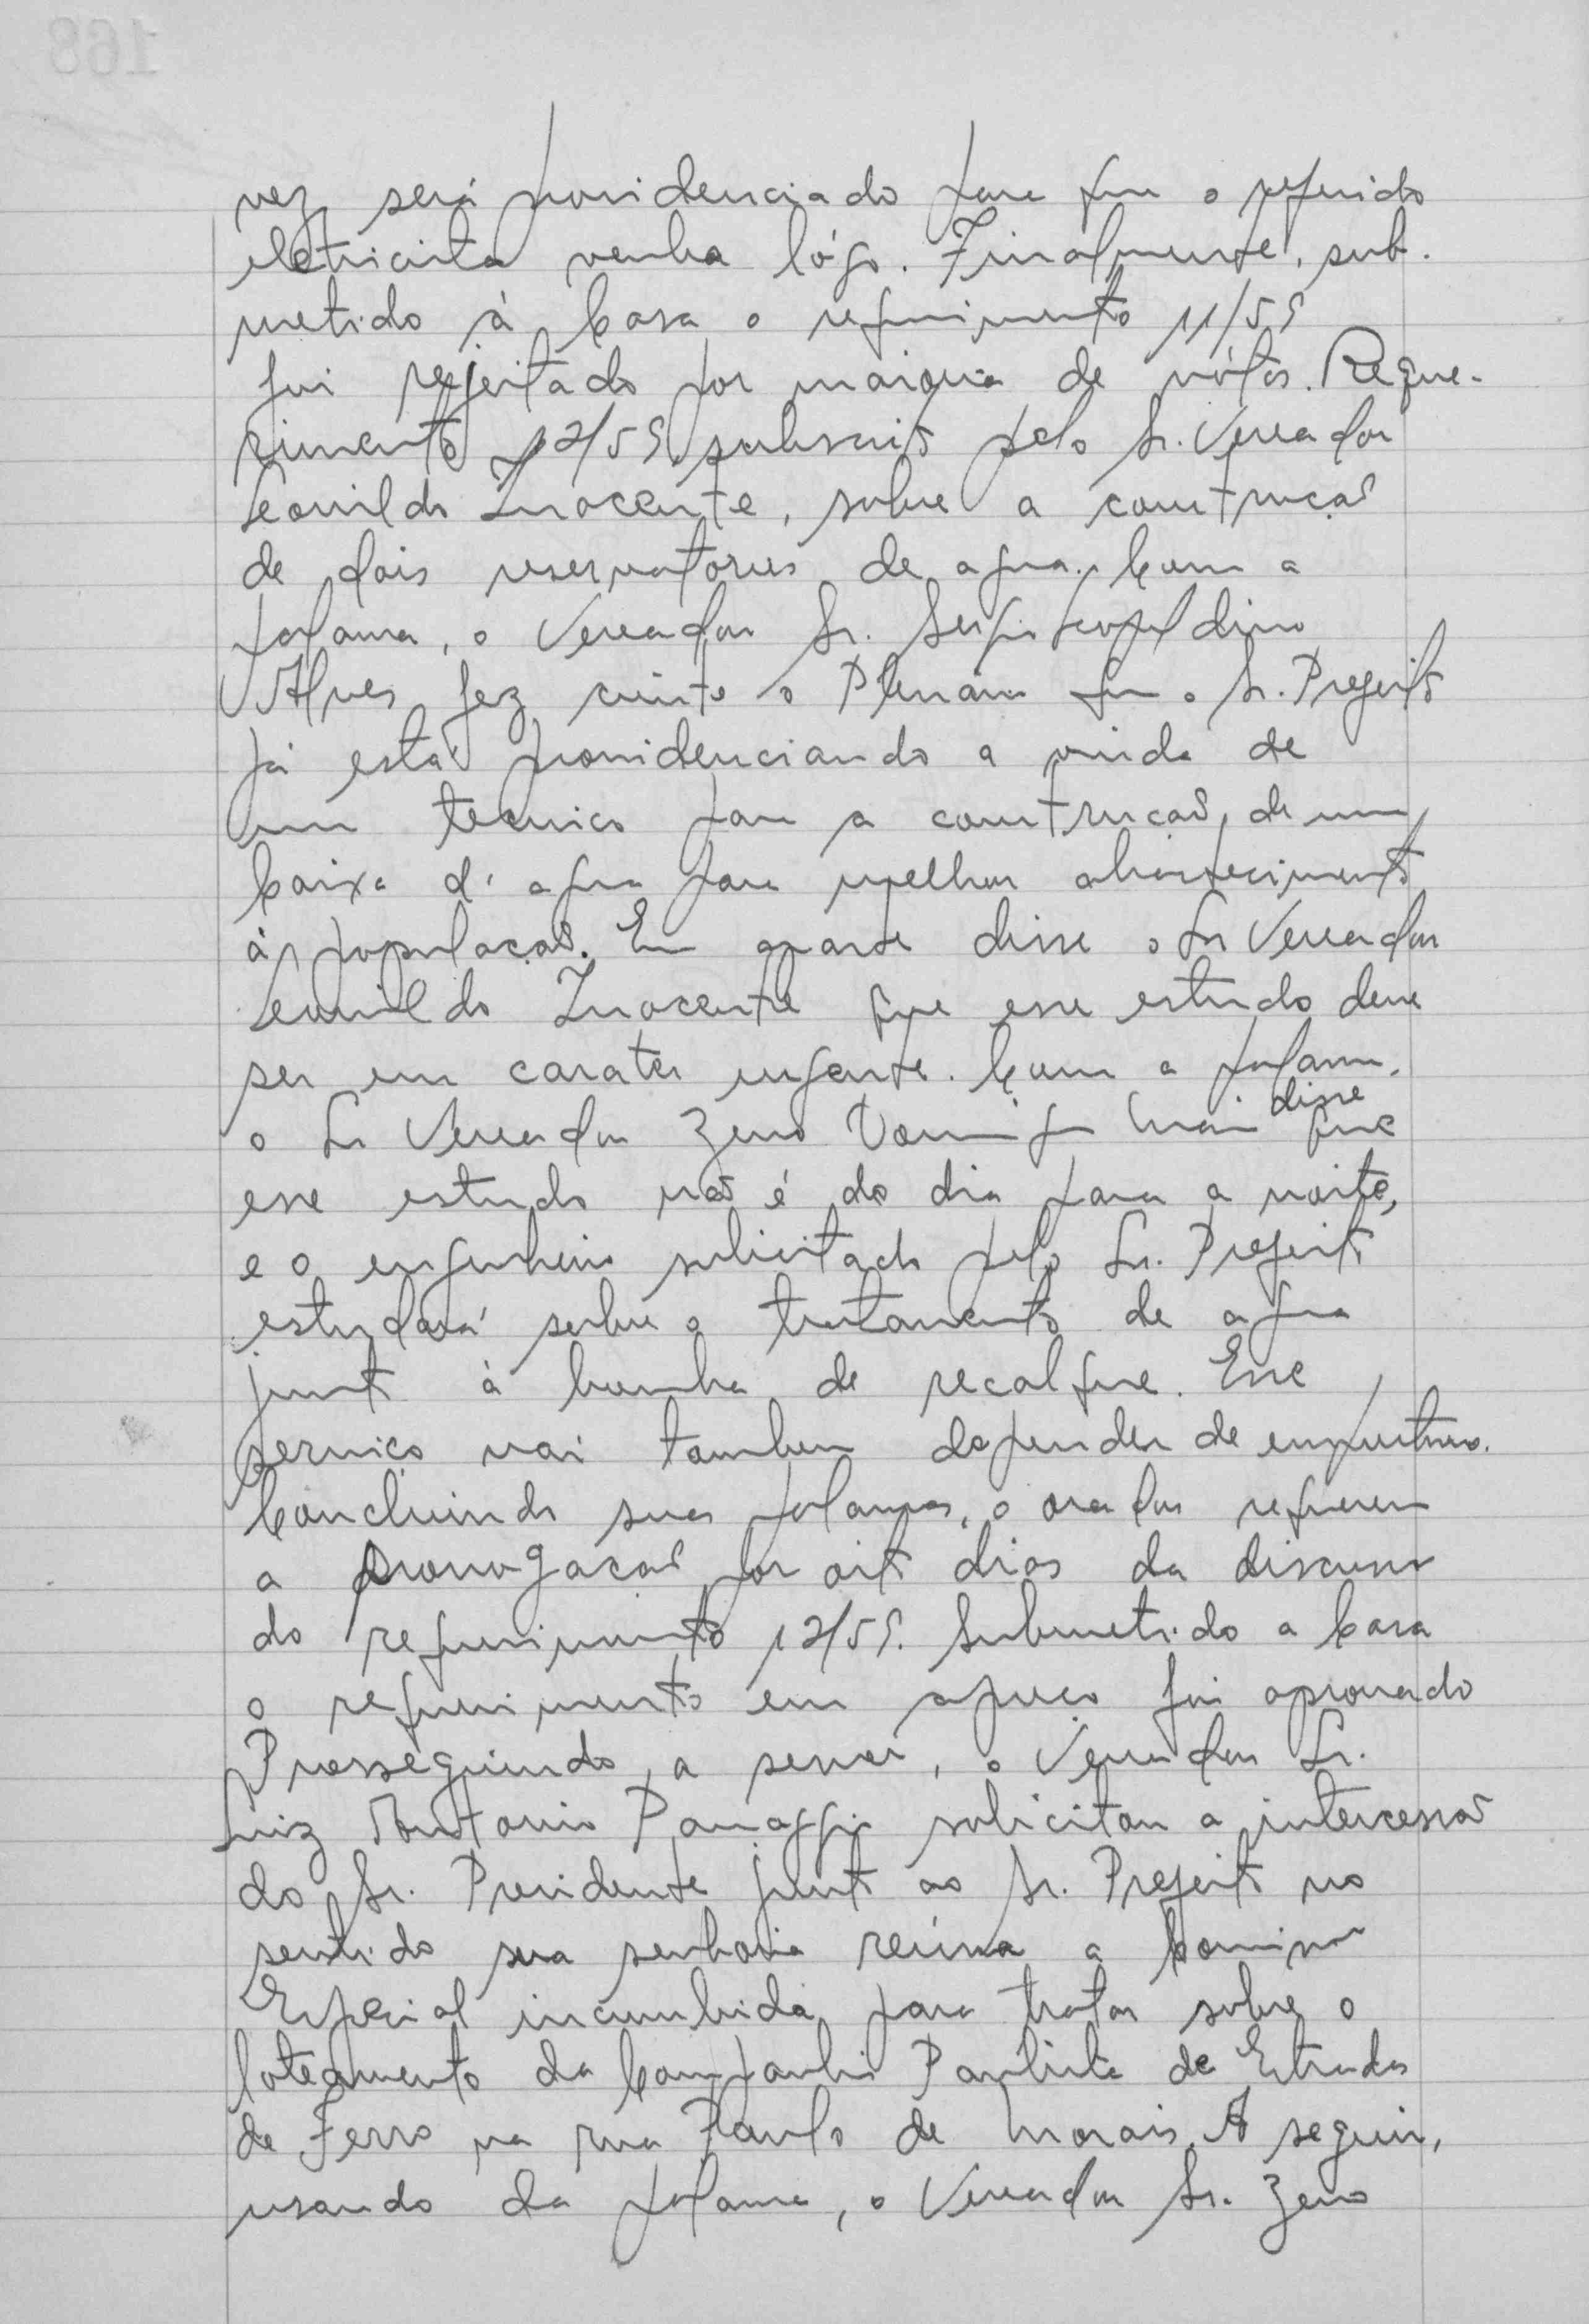 vez, será providenciado para que o referido
eletricista venha lógo. Finalmente, sub-
metido à Casa o requerimento 11/59
foi rejeitado por maioria de vótos. Reque-
rimento 12/59, subscrito pelo Sr. Vereador
Leonildo Inocente, sobre a construcaõ
de dois reservatorios de agua. Com a
palavra, o Vereador Sr. Sergio Leopoldino
Alves fez ciente o Plenário que o Sr. Prefeito
já está providenciando a vinda de
um tecnico para a construcaõ, de uma
Caixa d'agua para melhor abastecimento
á populaçaõ. Em aparte disse o Sr Vereador
Leonildo Inocente que esse estudo deve
ser em carater urgente. Com a palavra,
o Sr Vereador Zeno Maia disse que
esse estudo naõ é do dia para a noite,
e o engenheiro solicitado pelo Sr. Prefeito
estudará sobre o tratamento de agua
junto à bomba de recalque. Esse
serviço vai tambem depender de emprestimo.
Concluindo suas palavras, o orador requereu
a prorrogacaõ por oito dias da discussão
do requerimento 12/59. Submetido a Casa
o requerimento em apreço foi aprovado
Prosseguindo a sessaõ, o Vereador Sr.
Luiz Antonio Panaggio solicitou a intercessaõ
do Sr. Presidente junto ao Sr. Prefeito no
sentido sua senhoria reúna a Comissão
Especial incumbida para tratar sobre o
loteamento da Companhia Paulista de Estradas
de Ferro na rua Paulo de Morais. A seguir,
usando da palavra, o Vereador Sr. Zeno
168